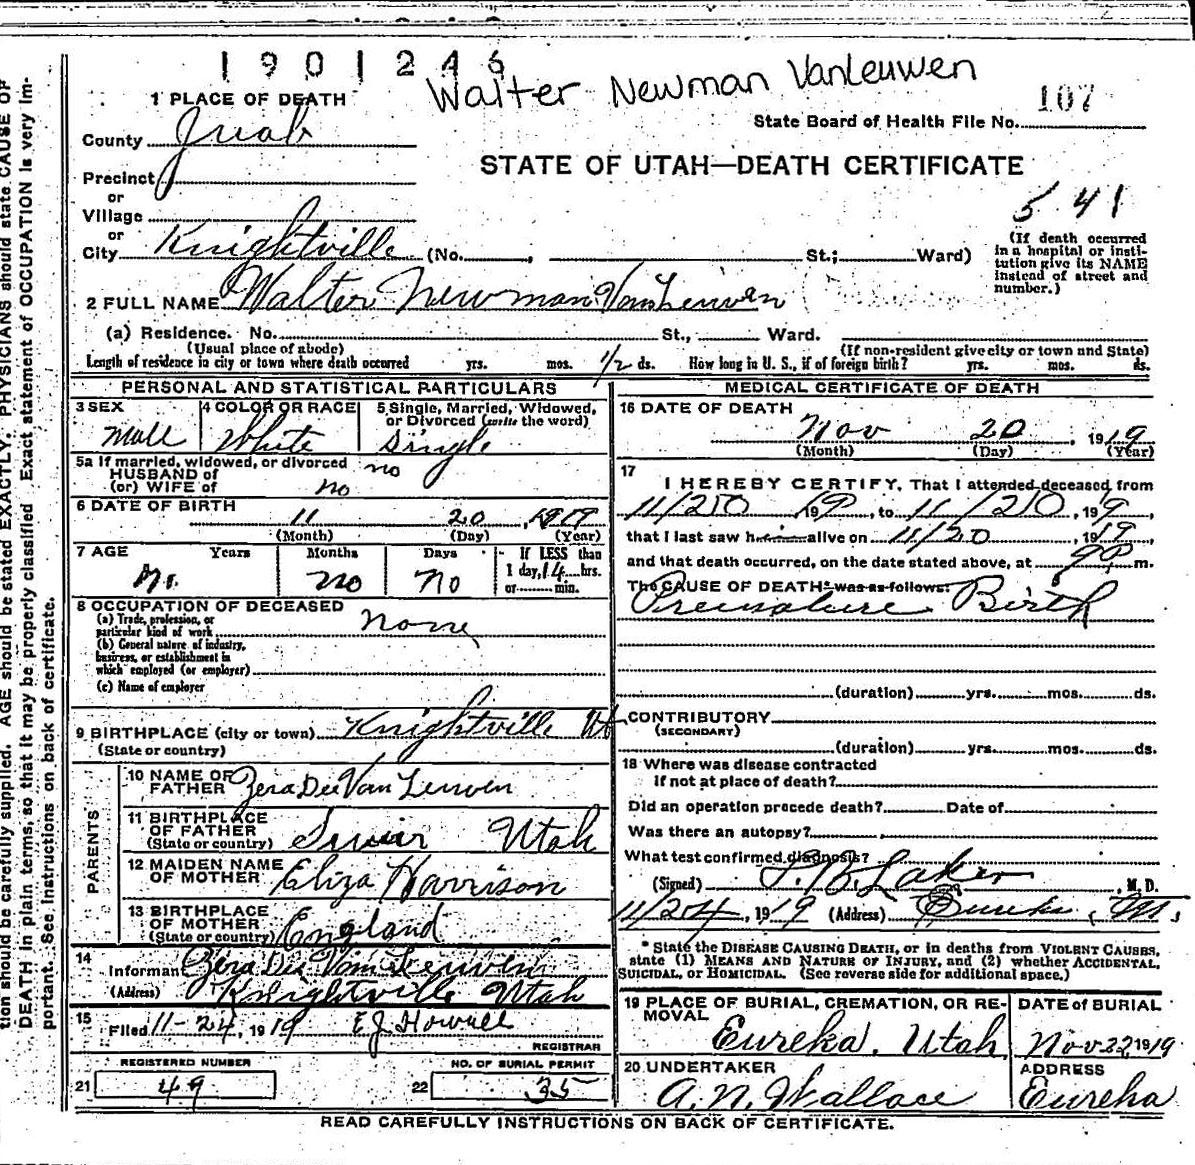 1901246
Walter Newman VanLeuwen
107
1 PLACE OF DEATH
State Board of Health File No.
County Juab
STATE OF UTAH—DEATH CERTIFICATE
Precinct
or
Village
541
or
City Knightville (No. St.; Ward)
(If death occurred
in a hospital or insti-
tution give its NAME
instead of street and
number.)
2 FULL NAME Walter Newman VanLeuven
(a) Residence. No. St., Ward.
(Usual place of abode) (If non-resident give city or town and State)
Length of residence in city or town where death occurred yrs. mos. 1/2 ds. How long in U. S., if of foreign birth? yrs. mos. ds.
PERSONAL AND STATISTICAL PARTICULARS
3 SEX 4 COLOR OR RACE 5 Single, Married, Widowed,
or Divorced (write the word)
Male White Single
5a If married, widowed, or divorced no
HUSBAND of
(or) WIFE of no
6 DATE OF BIRTH
11 20, 1919
(Month) (Day) (Year)
7 AGE Years Months Days If LESS than
1 day, 14 hrs.
or min.
No. No No
8 OCCUPATION OF DECEASED
(a) Trade, profession, or
particular kind of work None
(b) General nature of industry,
business, or establishment in
which employed (or employer)
(c) Name of employer
9 BIRTHPLACE (city or town) Knightville Ut
(State or country)
PARENTS
10 NAME OF
FATHER Zera Dee Van Leuven
11 BIRTHPLACE
OF FATHER
(State or country) Utah
12 MAIDEN NAME
OF MOTHER Eliza Harrison
13 BIRTHPLACE
OF MOTHER
(State or country) England
14
Informant Zera Dee Van Leuven
(Address) Knightville Utah
15
Filed 11-24, 1919 E J Howell
REGISTRAR
REGISTERED NUMBER NO. OF BURIAL PERMIT
21 49 22 35
MEDICAL CERTIFICATE OF DEATH
16 DATE OF DEATH
Nov 20, 1919
(Month) (Day) (Year)
17
I HEREBY CERTIFY, That I attended deceased from
11/20, 199, to 11/20, 199,
that I last saw him alive on 11/20, 1919,
and that death occurred, on the date stated above, at 9P m.
The CAUSE OF DEATH* was as follows:
Premature Birth
(duration) yrs. mos. ds.
CONTRIBUTORY
(SECONDARY)
(duration) yrs. mos. ds.
18 Where was disease contracted
if not at place of death?
Did an operation precede death? Date of
Was there an autopsy?
What test confirmed diagnosis?
(Signed) Laker, M. D.
11/24, 1919 (Address) Eureka,
* State the DISEASE CAUSING DEATH, or in deaths from VIOLENT CAUSES,
state (1) MEANS AND NATURE OF INJURY, and (2) whether ACCIDENTAL,
SUICIDAL, or HOMICIDAL. (See reverse side for additional space.)
19 PLACE OF BURIAL, CREMATION, OR RE-
MOVAL
Eureka, Utah
DATE of BURIAL
Nov 22 1919
20 UNDERTAKER
A. N. Wallace
ADDRESS
Eureka
READ CAREFULLY INSTRUCTIONS ON BACK OF CERTIFICATE.
tion should be carefully supplied. AGE should be stated EXACTLY. PHYSICIANS should state CAUSE OF
DEATH in plain terms, so that it may be properly classified. Exact statement of OCCUPATION is very im-
portant. See instructions on back of certificate.